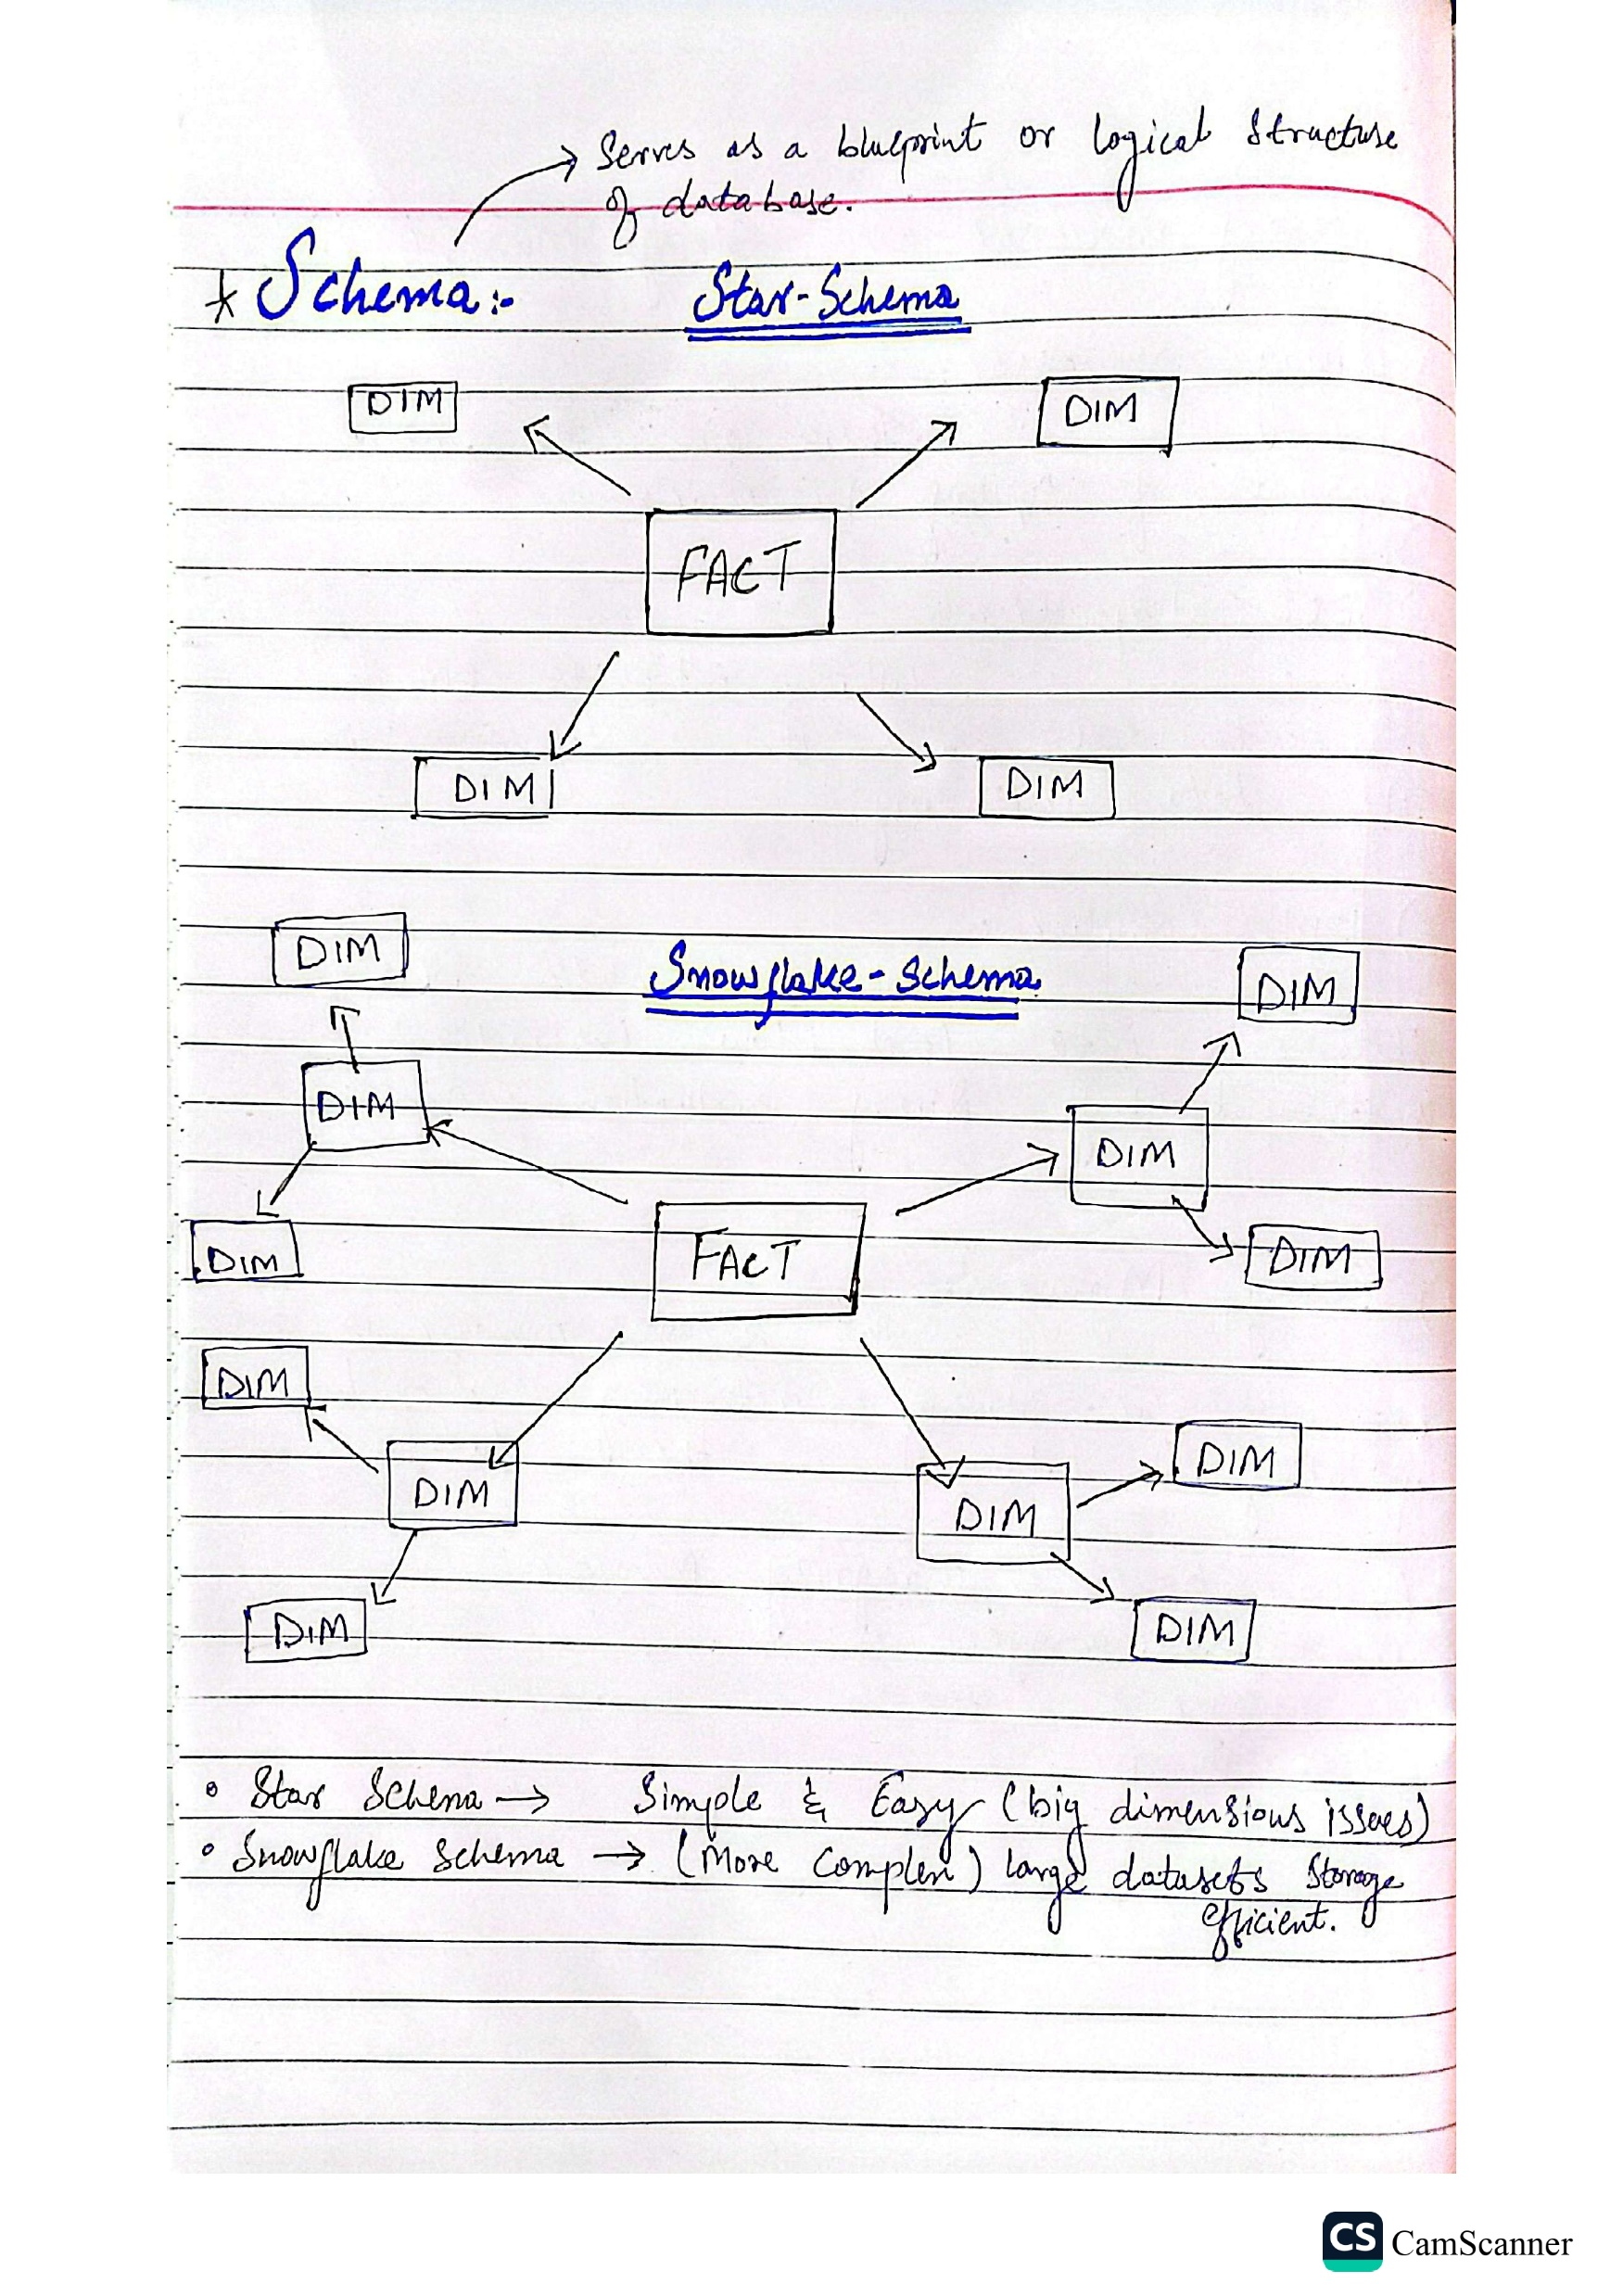 → Serves as a blueprint or logical structure
of database.
* Schema:- Star-Schema
DIM DIM
FACT
DIM DIM
DIM
Snowflake-Schema
DIM
DIM
DIM
DIM
FACT
DIM
DIM
DIM
DIM
DIM
DIM
DIM
DIM
• Star Schema → Simple & Easy (big dimensions issues)
• Snowflake Schema → (More Complex) large datasets Storage
efficient.
CS CamScanner